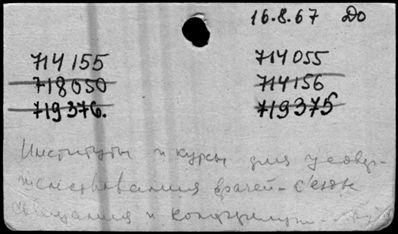 16.8.67 До
714155 714055
718050 714156
719376. 719375
Институты и курсы для усовер-
шенствования врачей - съезды
совещания и конференции -